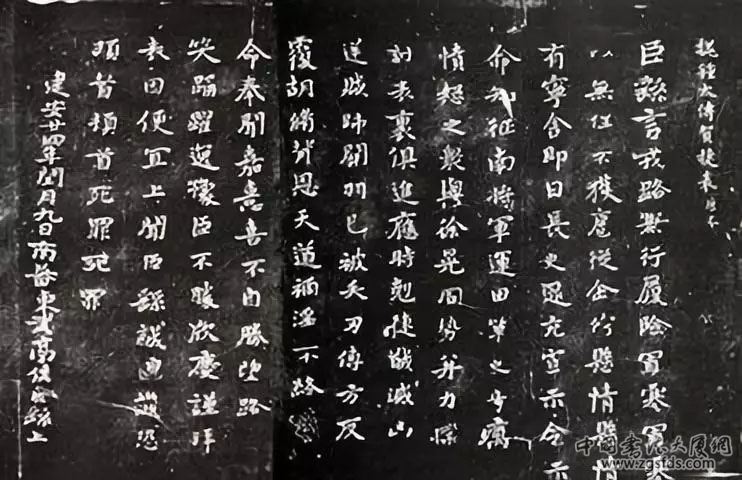 鍾太傅賀捷表
臣繇言戎路兼行履險冒寒冒寒
以無任不獲扈從企佇懸情懸情
有寧舍即日長史逯充宣示令示
命知征南將軍運田單之奇厲
憤怒之衆與徐晃同勢并力撲
討表裏俱進應時剋捷馘滅凶
逆賊帥關羽已被矢刃傅方反
覆胡脩背恩天道禍淫不終厥
命奉聞嘉憙喜不自勝望路
笑踊躍逸豫臣不勝欣慶謹拜
表因便宜上聞臣繇誠惶誠恐
頓首頓首死罪死罪
建安廿四年閏月九日南蕃東武亭侯臣繇上
中國書法大厦網
www.zgsfds.com